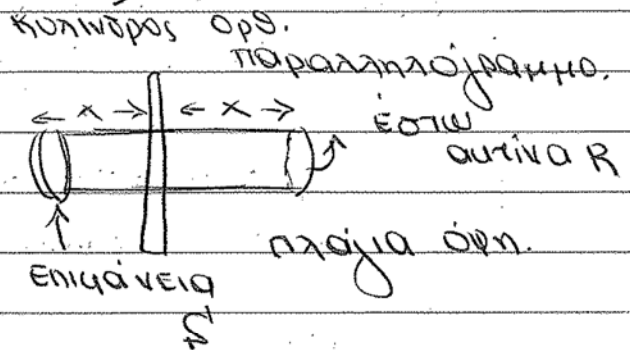 κύλινδρος ορθ.
παραλληλόγραμμο.
← x → ← x →
έστω
ακτίνα R
πλάγια όψη.
επιφάνεια
S